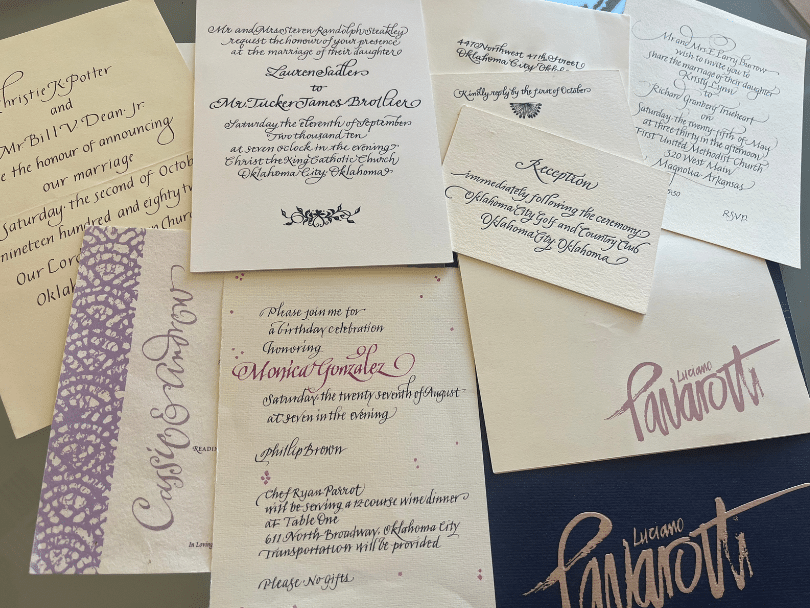 Christie K Potter
and
Mr Bill V. Dean Jr.
the honour of announcing
our marriage
Saturday the second of Octob
nineteen hundred and eighty tw
in Church
Our Lord
Oklah
Mr. and Mrs. Steven Randolph Steakley
request the honour of your presence
at the marriage of their daughter
Lauren Sadler
to
Mr. Tucker James Brollier
Saturday the eleventh of September
Two thousand ten
at seven o'clock in the evening
Christ the King Catholic Church
Oklahoma City, Oklahoma
4470 Northwest 47th Street
Oklahoma City, Okla
Kindly reply by the first of October
Reception
immediately following the ceremony
Oklahoma City Golf and Country Club
Oklahoma City, Oklahoma
Mr and Mrs. E Larry
wish to invite you to
share the marriage of their daughter
Kristy Lynn
to
Richard Granbery Trueheart
on
Saturday the twenty fifth of May
at three thirty in the afternoon
First United Methodist Church
320 West Main
Magnolia, Arkansas
RSVP
Cassie & Andrew
READIN
In Loving
Please join me for
a birthday celebration
honoring
Monica Gonzalez
Saturday the twenty seventh of August
at seven in the evening
Phillip Brown
Chef Ryan Parrot
will be serving a 12 course wine dinner
at Table One
611 North Broadway, Oklahoma City
Transportation will be provided
Please No gifts
Luciano
Pavarotti
Luciano
Pavarotti